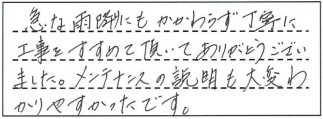 急な雨降にもかかわらず丁寧に
工事をすすめて頂いてありがとうござい
ました。メンテナンスの説明も大変わ
かりやすかったです。